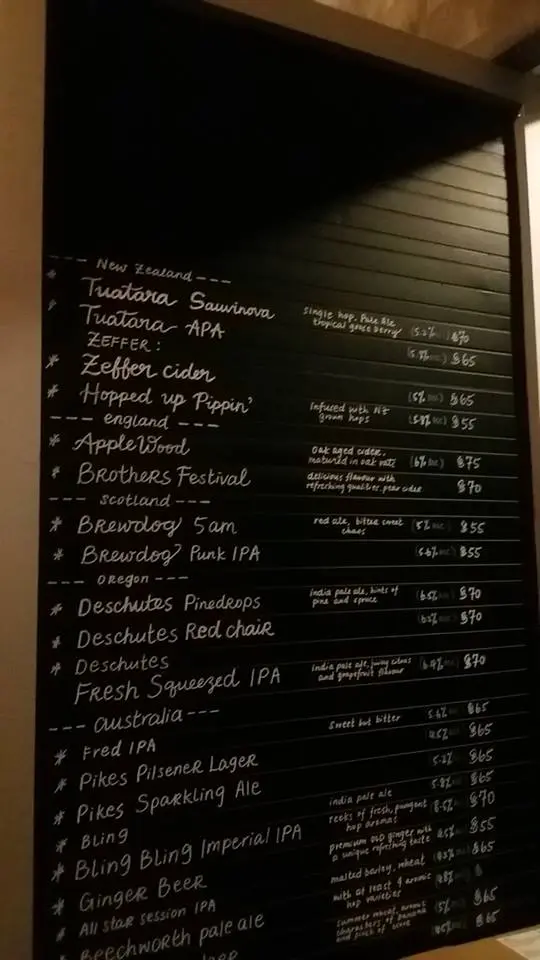 --- New Zealand ---
* Tuatara Sauvinova single hop. Pale Ale tropical goose berry (5.2% $70
* Tuatara APA $65
ZEFFER:
* Zeffer cider (5% $65
* Hopped up Pippin' Infused with NZ grown hops $55
--- england ---
* AppleWood oak aged cider, matured in oak vats (6% $75
* Brothers Festival delicious flavour with refreshing qualities, pear cider $70
--- scotland ---
* Brewdog 5am red ale, bitter sweet (5% $55
* Brewdog Punk IPA (5.6% $55
--- oregon ---
* Deschutes Pinedrops india pale ale, hints of pine and spruce (6.5% $70
* Deschutes Red chair $70
* Deschutes
Fresh Squeezed IPA india pale ale, juicy citrus and grapefruit flavour (6.4% $70
--- australia ---
* Fred IPA sweet but bitter 5.6% $65
* Pikes Pilsener Lager $65
* Pikes Sparkling Ale 5.2% $65
* Bling 5.8% $65
* Bling Bling Imperial IPA india pale ale reeks of fresh, pungent hop aromas 8.5% $70
* Ginger Beer premium OLD ginger with a unique refreshing taste $55
* All star session IPA malted barley, wheat with at least 9 aromic hop varieties $65
* Beechworth pale ale summer wheat, aromas characters of banana and pinch of clove $65
$65